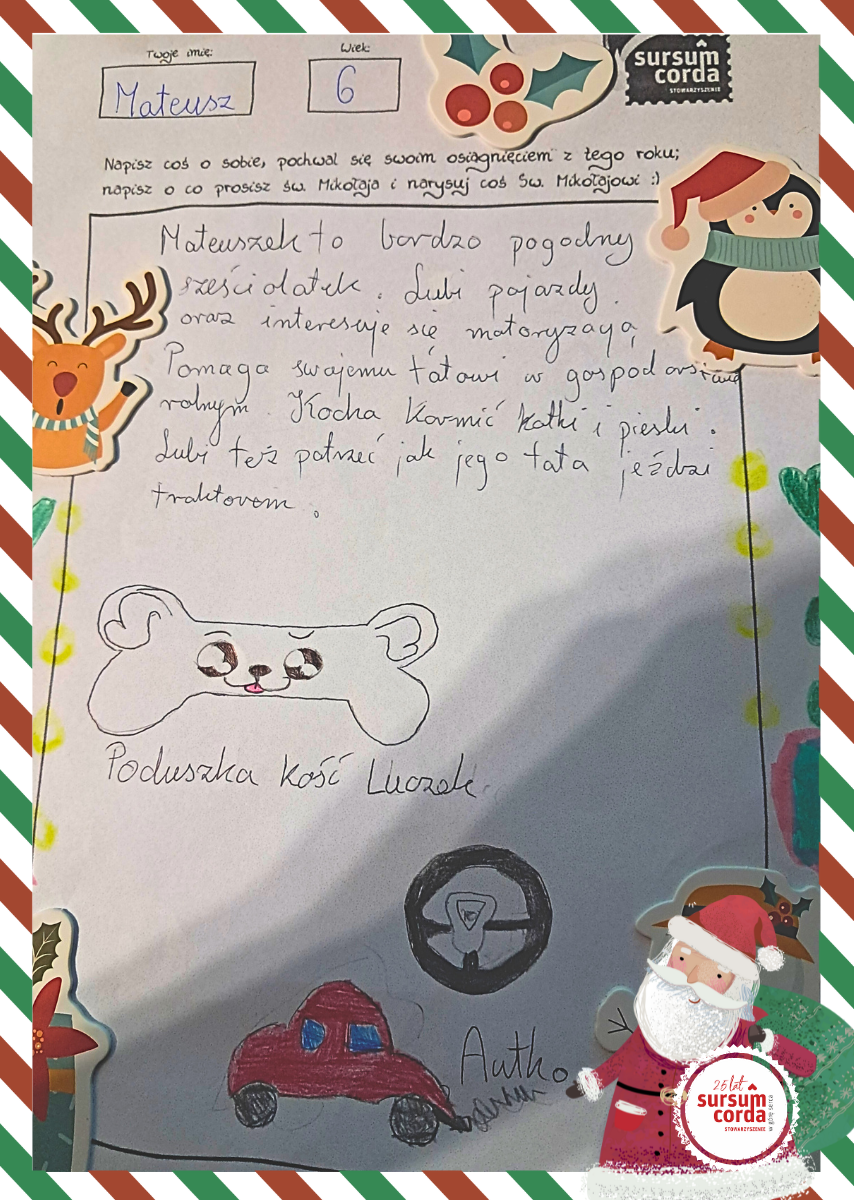 Twoje imię:
Wiek:
Mateusz
6
sursum
corda
STOWARZYSZENIE
Napisz coś o sobie, pochwal się swoim osiągnięciem z tego roku;
napisz o co prosisz św. Mikołaja i narysuj coś Św. Mikołajowi :)
Mateuszek to bardzo pogodny
sześciolatek. Lubi pojazdy
oraz interesuje się motoryzacją
Pomaga swojemu tatowi w gospodarstwie
rolnym. Kocha karmić kotki i pieski.
Lubi też patrzeć jak jego tata jeździ
traktorem.
Poduszka kość Luczek
Autko
26 lat
sursum
corda
STOWARZYSZENIE
w górę serca